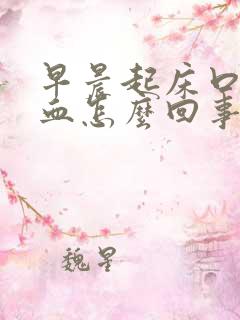 早晨起床口
血怎麼回事
魏星